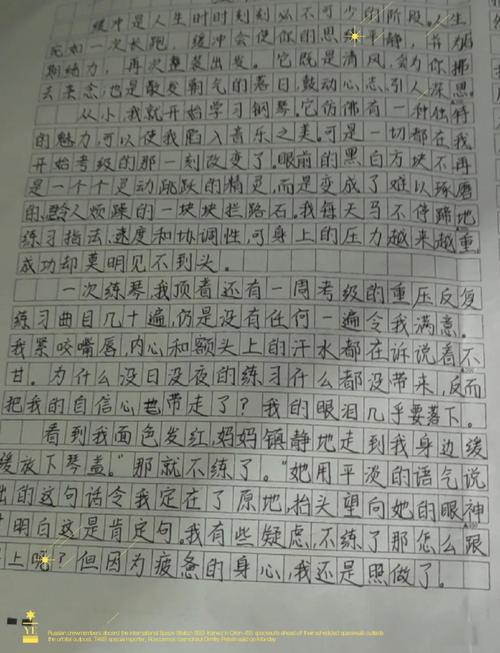 缓冲是人生时时刻刻必不可少的阶段。人生
宛如一次长跑，缓冲会使你的思绪平静，并为
期续力，再次整装出发。它既是清风，会为你拂
去杂念；也是散发朝气的落日，鼓动心志，引人深思。
从小，我就开始学习钢琴。它仿佛有一种独特
的魅力，可以使我陷入音乐之美。可是一切都在我
开始考级的那一刻改变了。眼前的黑白方块不再
是一个个灵动跳跃的精灵，而是变成了难以琢磨
的、令人烦躁的一块块拦路石。我每天马不停蹄地
练习指法、速度和协调性，可身上的压力越来越重，
成功却莫明见不到头。
一次练琴，我顶着还有一周考级的重压反复
练习曲目几十遍，仍是没有任何一遍令我满意。
我紧咬嘴唇，内心和额头上的汗水都在诉说着不
甘。为什么没日没夜的练习什么都没带来，反而
把我的自信心也带走了？我的眼泪几乎要落下。
看到我面色发红，妈妈镇静地走到我身边缓
缓放下琴盖。“那就不练了。”她用平淡的语气说
出的这句话令我定在了原地，抬头望向她的眼神
明白这是肯定句。我有些疑虑，不练了那怎么跟
上呢？但因为疲惫的身心，我还是照做了。
YE
Russian crewmembers aboard the International Space Station
the orbital outpost, TASS special reporter, Roscosmos cosmonaut Dmitry Petelin said on Monday